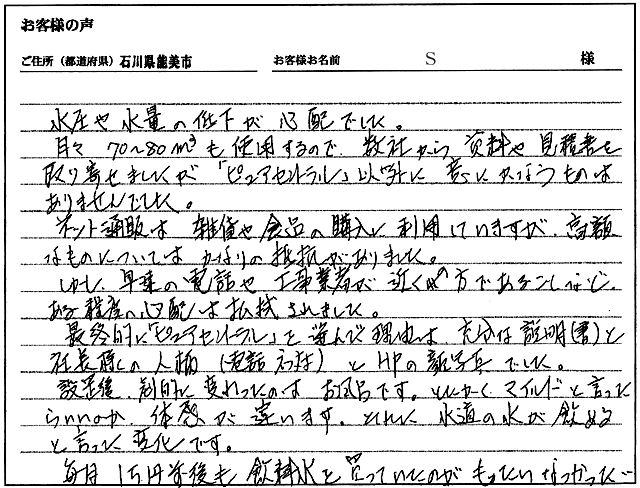 お客様の声
ご住所（都道府県）石川県能美市 お客様お名前 S 様
水圧や水量の低下が心配でした。
月々70～80m³も使用するので、数社から資料や見積書を
取り寄せましたが「ピュアセントラル」以外に意にかなうものは
ありませんでした。
ネット通販は雑貨や食品の購入に利用していますが、高額
なものについてはかなりの抵抗がありました。
しかし、早速の電話や工事業者が近くの方であることなど、
ある程度の心配は払拭されました。
最終的に「ピュアセントラル」を選んだ理由は、充分な説明(書)と
社長様の人柄（電話対応）とHPの顔写真でした。
設置後、劇的に変わったのはお風呂です。とにかくマイルドと言った
らいいのか、体感が違います。それに水道の水が飲める
と言った変化です。
毎月1万円前後も飲料水を買っていたのがもったいなかった